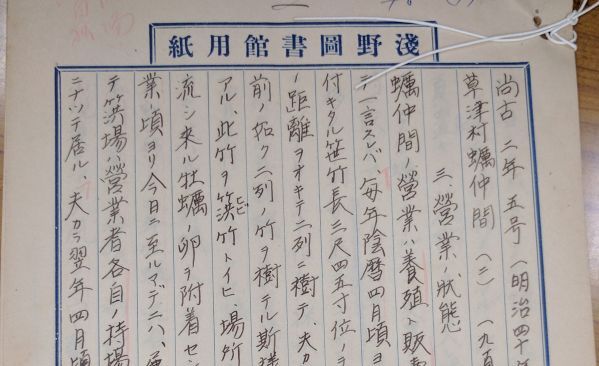 淺野圖書館用紙
尚古 二年五号(明治四十年
草津村蠣仲間(二) (一九頁
三 營業ノ狀態
蠣仲間ノ營業ハ養殖ト販
ニ一言スレバ 毎年陰暦四月頃ヨ
付キタル笹竹長三尺四五寸位ノ
ノ距離ヲオキテ二列ニ樹テ、夫カ
前ノ如ク二列ノ竹ヲ樹テル斯様
アル、此竹ヲ篊竹トイヒ、場所
流シ来ル牡蠣ノ卵ヲ附着セン
業ノ頃ヨリ今日ニ至ルマデニハ、
テ篊場ハ營業者各自ノ持場
ニナツテ居ル、夫カラ翌年四月頃